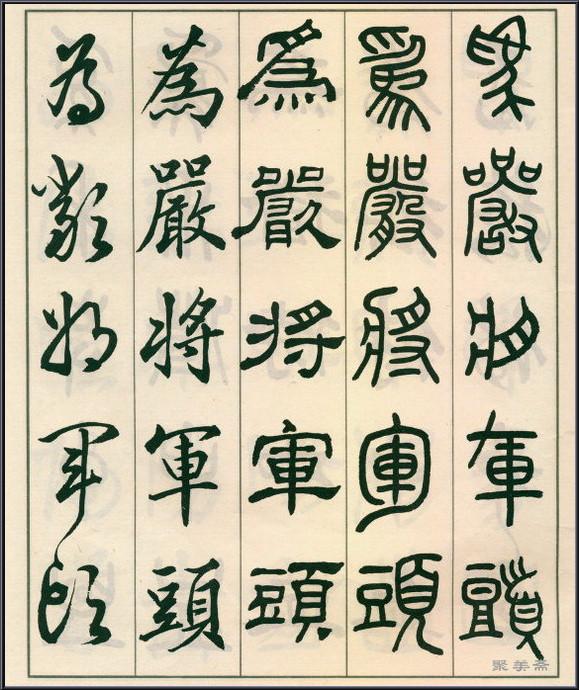 爲嚴將軍頭
爲嚴將軍頭
爲嚴將軍頭
為嚴將軍頭
為嚴將軍頭
聚美斋